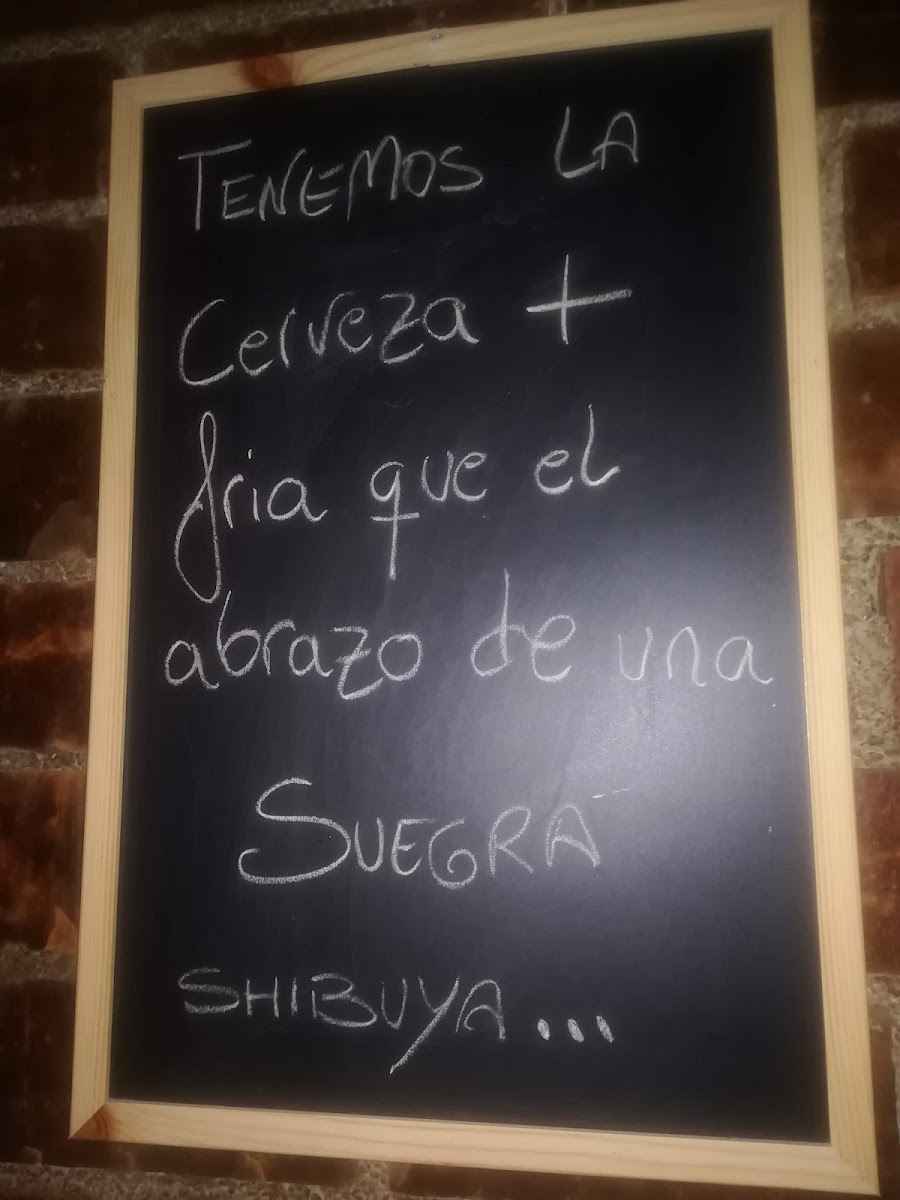 TENEMOS LA
Cerveza +
fria que el
abrazo de una
SUEGRA
SHIBUYA...